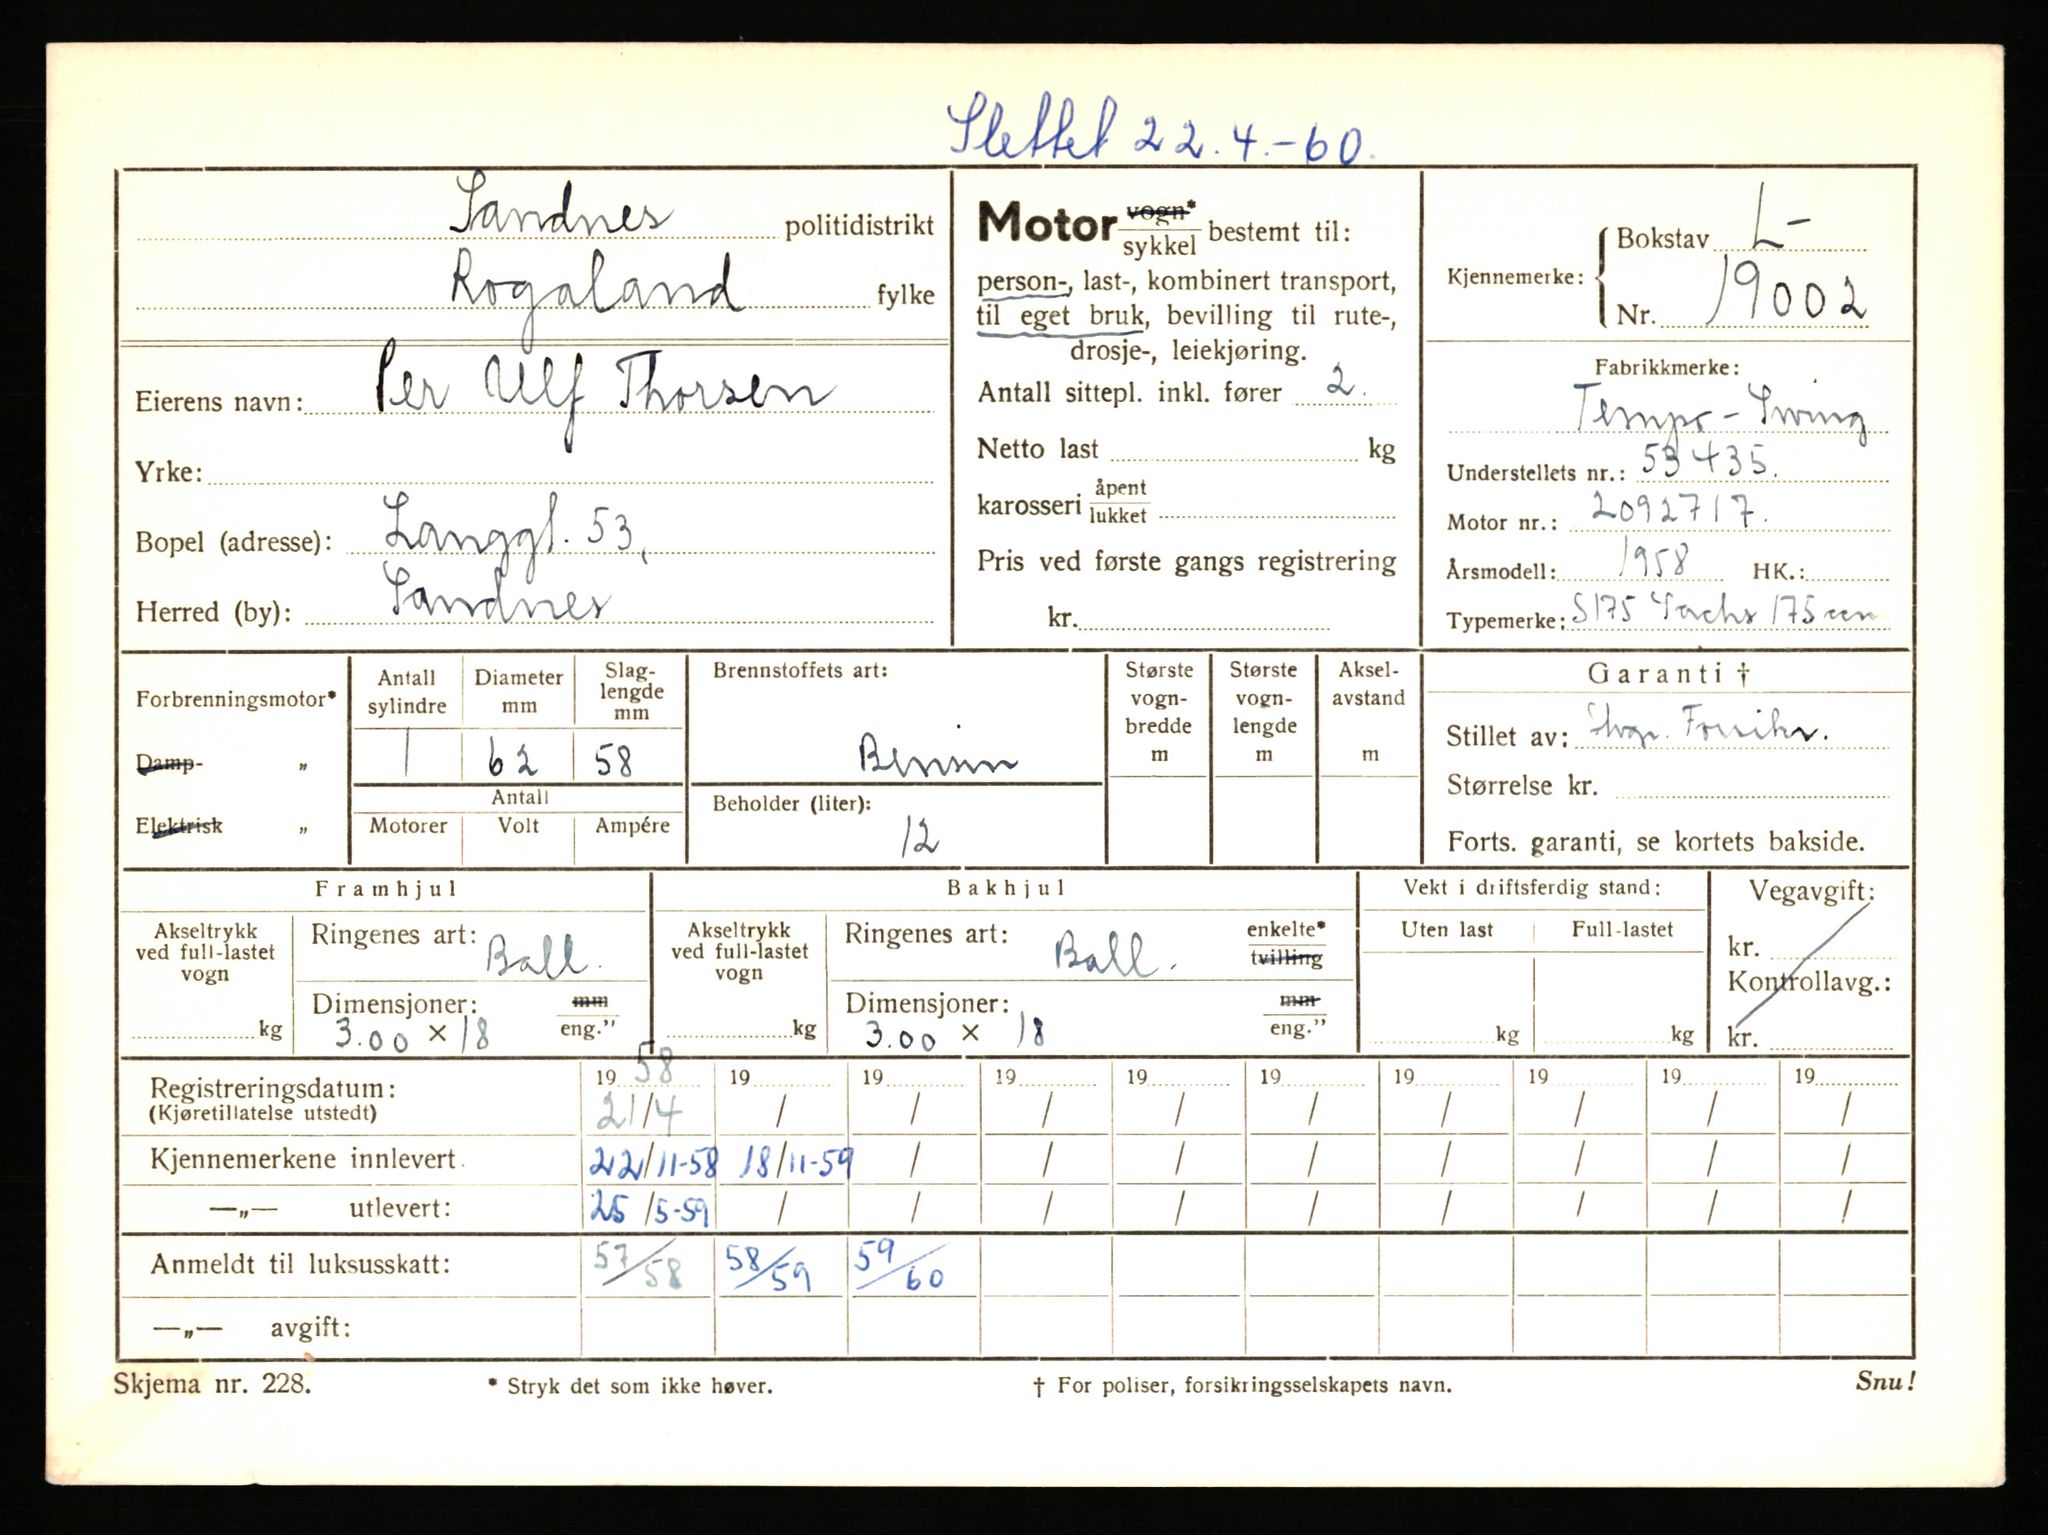 Slettet 22.4.-60.
Sandnes politidistrikt
Rogaland fylke
Eierens navn: Per Ulf Thorsen
Yrke:
Bopel (adresse): Langgt. 53,
Herred (by): Sandnes
Motor vogn* sykkel bestemt til:
person-, last-, kombinert transport,
til eget bruk, bevilling til rute-,
drosje-, leiekjøring.
Antall sittepl. inkl. fører 2.
Netto last kg
karosseri åpent lukket
Pris ved første gangs registrering
kr.
Kjennemerke: Bokstav L-
Nr. 19002
Fabrikkmerke:
Tempo - Swing
Understellets nr.: 53435.
Motor nr.: 2092717.
Årsmodell: 1958 HK.:
Typemerke: S175 Sachs 175 ccm
Forbrenningsmotor*
Damp- „
Elektrisk „
Antall sylindre Diameter mm Slag-lengde mm
1 62 58
Antall
Motorer Volt Ampére
Brennstoffets art:
Bensin
Beholder (liter):
12
Største vogn-bredde m
Største vogn-lengde m
Aksel-avstand m
Garanti †
Stillet av:
Størrelse kr.
Forts. garanti, se kortets bakside.
Framhjul
Akseltrykk ved full-lastet vogn
kg
Ringenes art: Ball.
Dimensjoner: mm eng."
3.00 × 18
Bakhjul
Akseltrykk ved full-lastet vogn
kg
Ringenes art: Ball. enkelte* tvilling
Dimensjoner: mm eng."
3.00 × 18
Vekt i driftsferdig stand:
Uten last Full-lastet
kg kg
Vegavgift:
kr.
Kontrollavg.:
kr.
Registreringsdatum: 19 58 19 19 19 19 19 19 19 19 19
(Kjøretillatelse utstedt) 21/4 / / / / / / / / /
Kjennemerkene innlevert. 22/11-58 18/11-59 / / / / / / / /
—„— utlevert: 25/5-59 / / / / / / / / /
Anmeldt til luksusskatt: 57/58 58/59 59/60
—„— avgift:
Skjema nr. 228. * Stryk det som ikke høver. † For poliser, forsikringsselskapets navn. Snu!